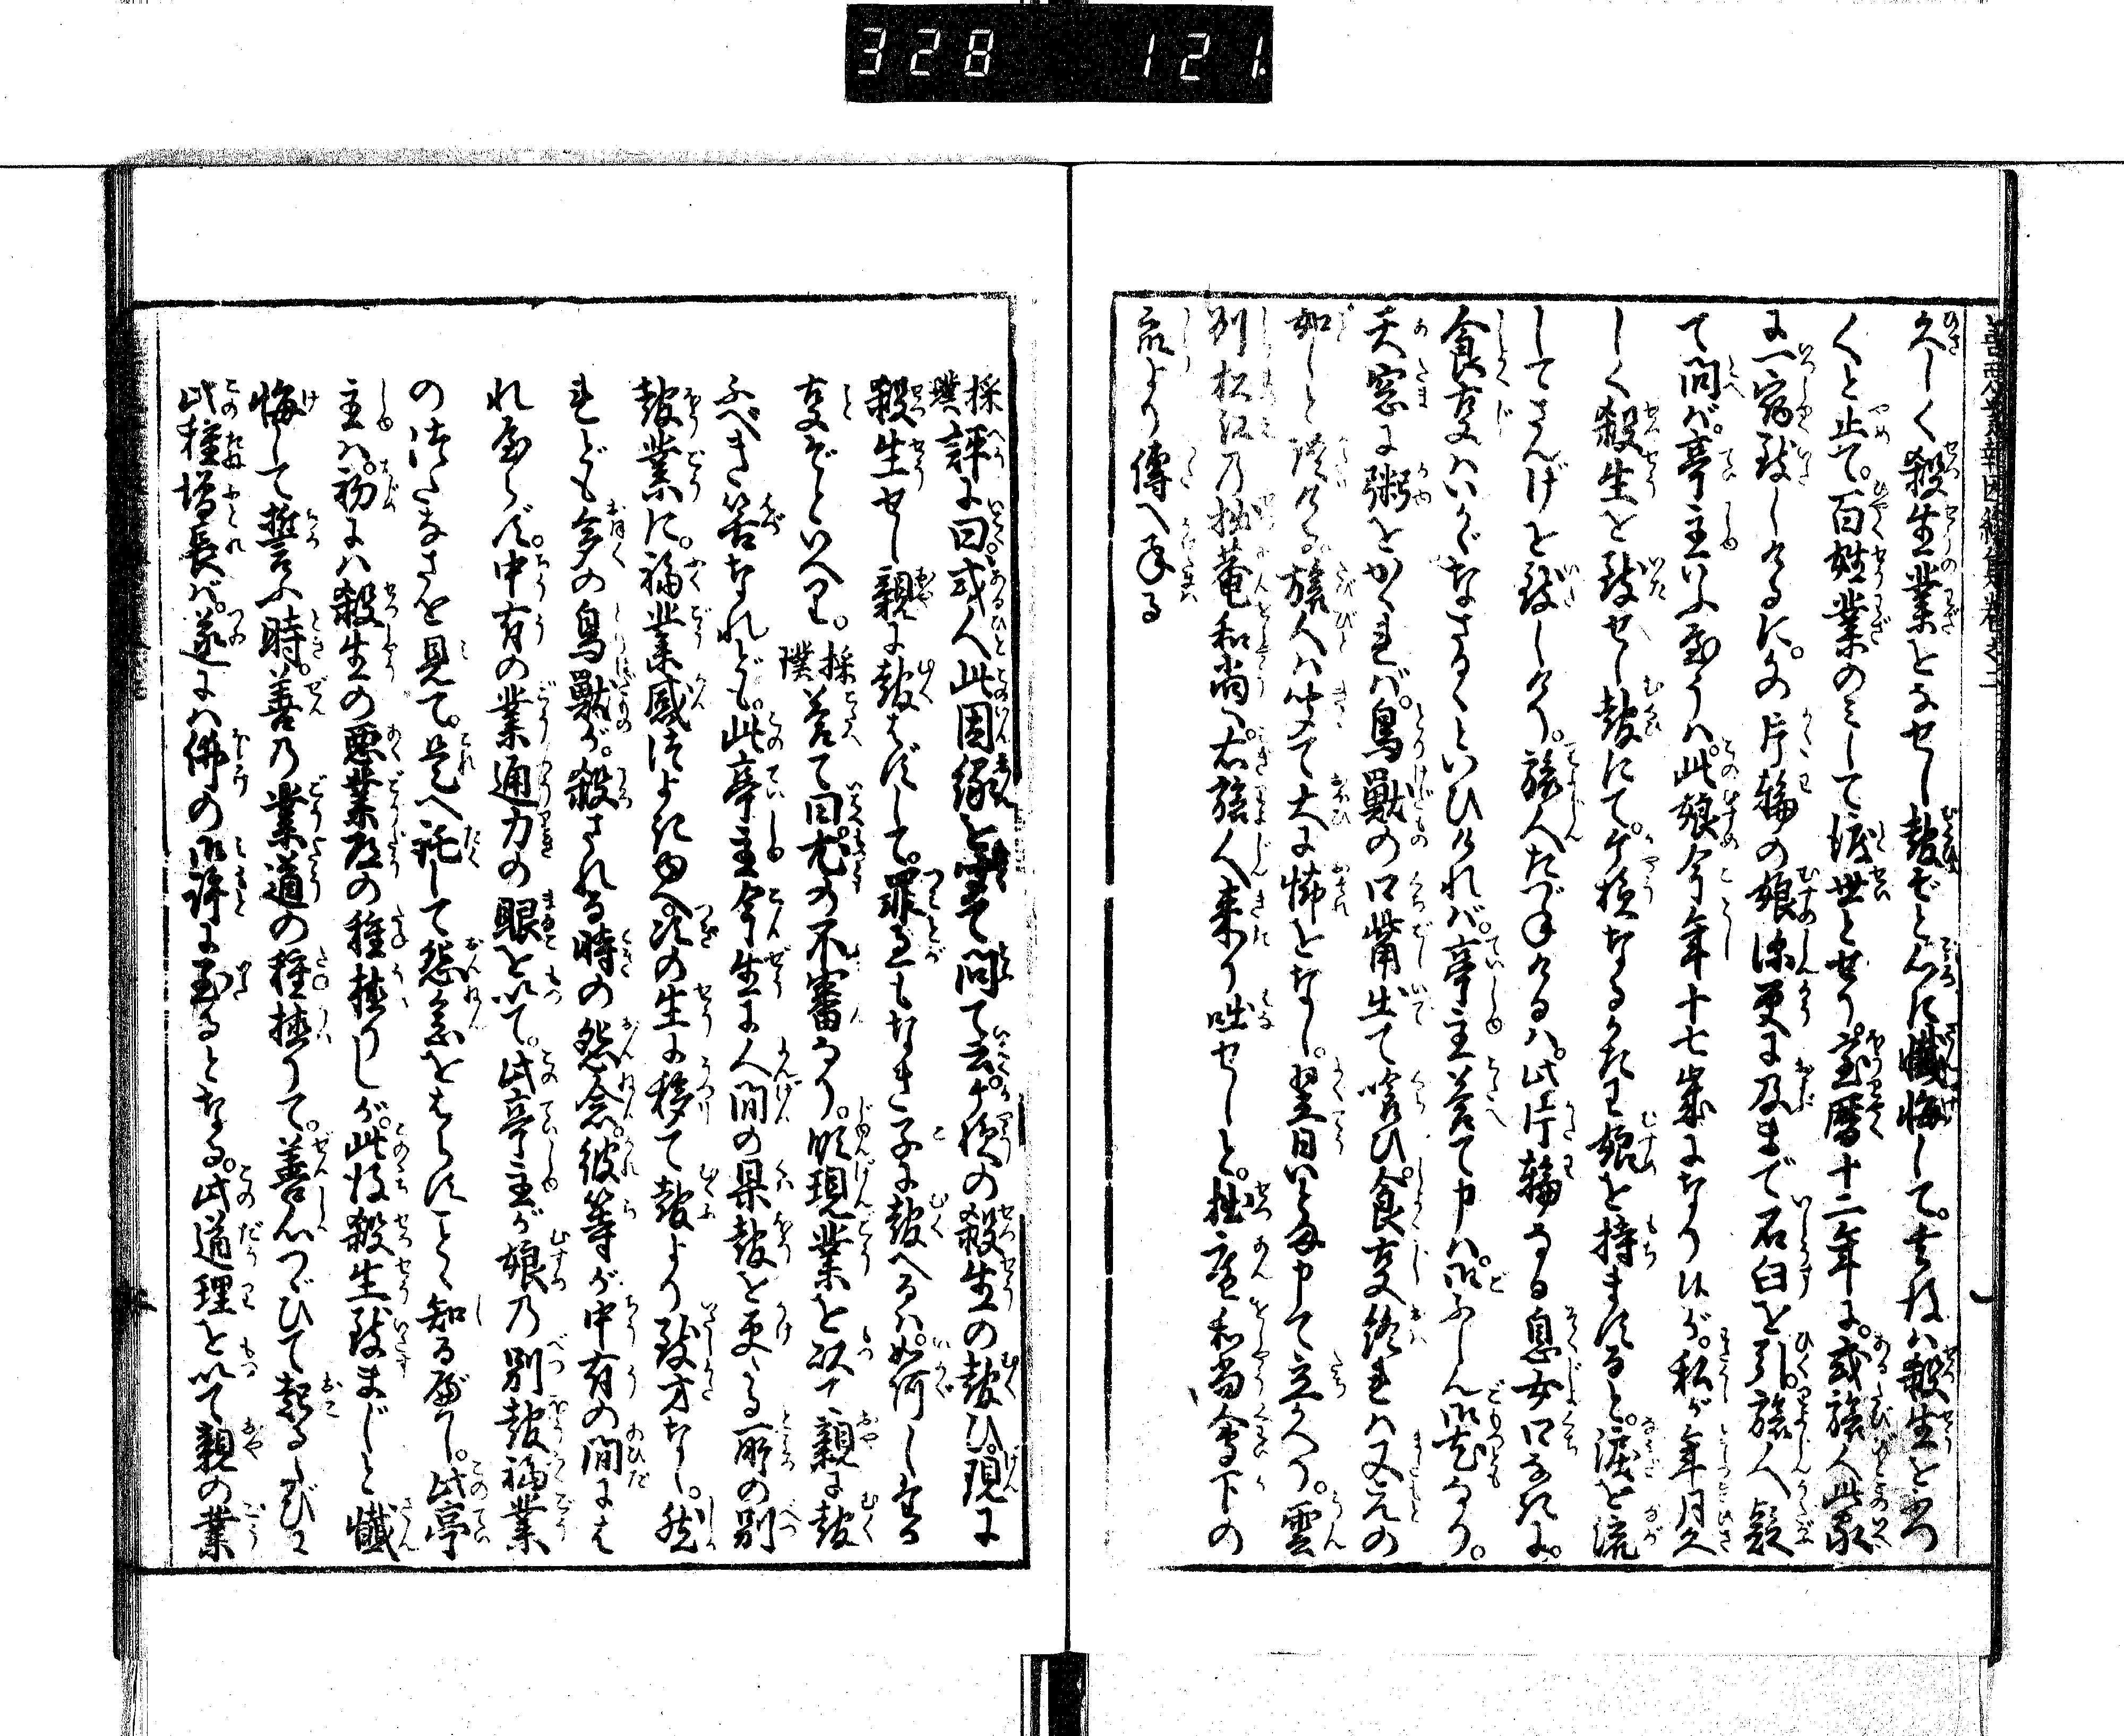 328 121
善悪業報因縁集巻之二
久しく殺生業となせし報ぞと心に懺悔して。其後は殺生をふつ
くと止て。百姓業のみして渡世と世り。宝暦十二年に。或旅人此家
に一宿致しけるに。かの片輪の娘深更に及まで石臼を引。旅人疑
て問ば。亭主いふ至うハ。此娘今年十七歳になり候が。私が年月久
しく殺生を致せし報にて。ケ様なるかたわ娘を持まするると。涙を流
してさんげを致しけり。旅人たづねけるハ。此片輪なる息女口なきに。
食事ハいかゞなさるゝといひけれバ。亭主答て申ハ。御ふしん御尤なり。
天窓に粥をかくれバ。鳥獣の口觜出て喰ひ。食事終れハ又元の
如しと語ける。旅人ハ聞て大に怖をなし。翌日いとま申て立けり。雲
州松江の拙菴和尚へ。右旅人来り咄せしと。拙庵和尚會下の
衆より傳へける
採璞評に曰。或人此因縁を聞て問て云。ケ様の殺生の報ひ。現に
殺生せし親に報はずして。罪咎もなき子に報へるハ。如何しける
事ぞといへり。採璞答て曰。尤の不審なり。順現業を以て親に報
ふべき筈なれども。此亭主今生に人間の果報を更る所の別
報業に。福業感つよきゆへ。次の生に移て報より致方なし。然
れども多の鳥獣が。殺される時の怨念。彼等が中有の間にはな
れ居らず。中有の業通力の眼を以て。此亭主が娘の別報福業
のつたなきを見て。是へ託して怨念をはらすこと知る所なし。此亭
主ハ。初にハ殺生の悪業道の種植りしが。此後殺生致まじと懺
悔して誓ふ時。善の業道の種植りて。善心つゞひて起るたびに
此種増長バ。遂にハ佛の御許に至るとなる。此道理を以て親の業